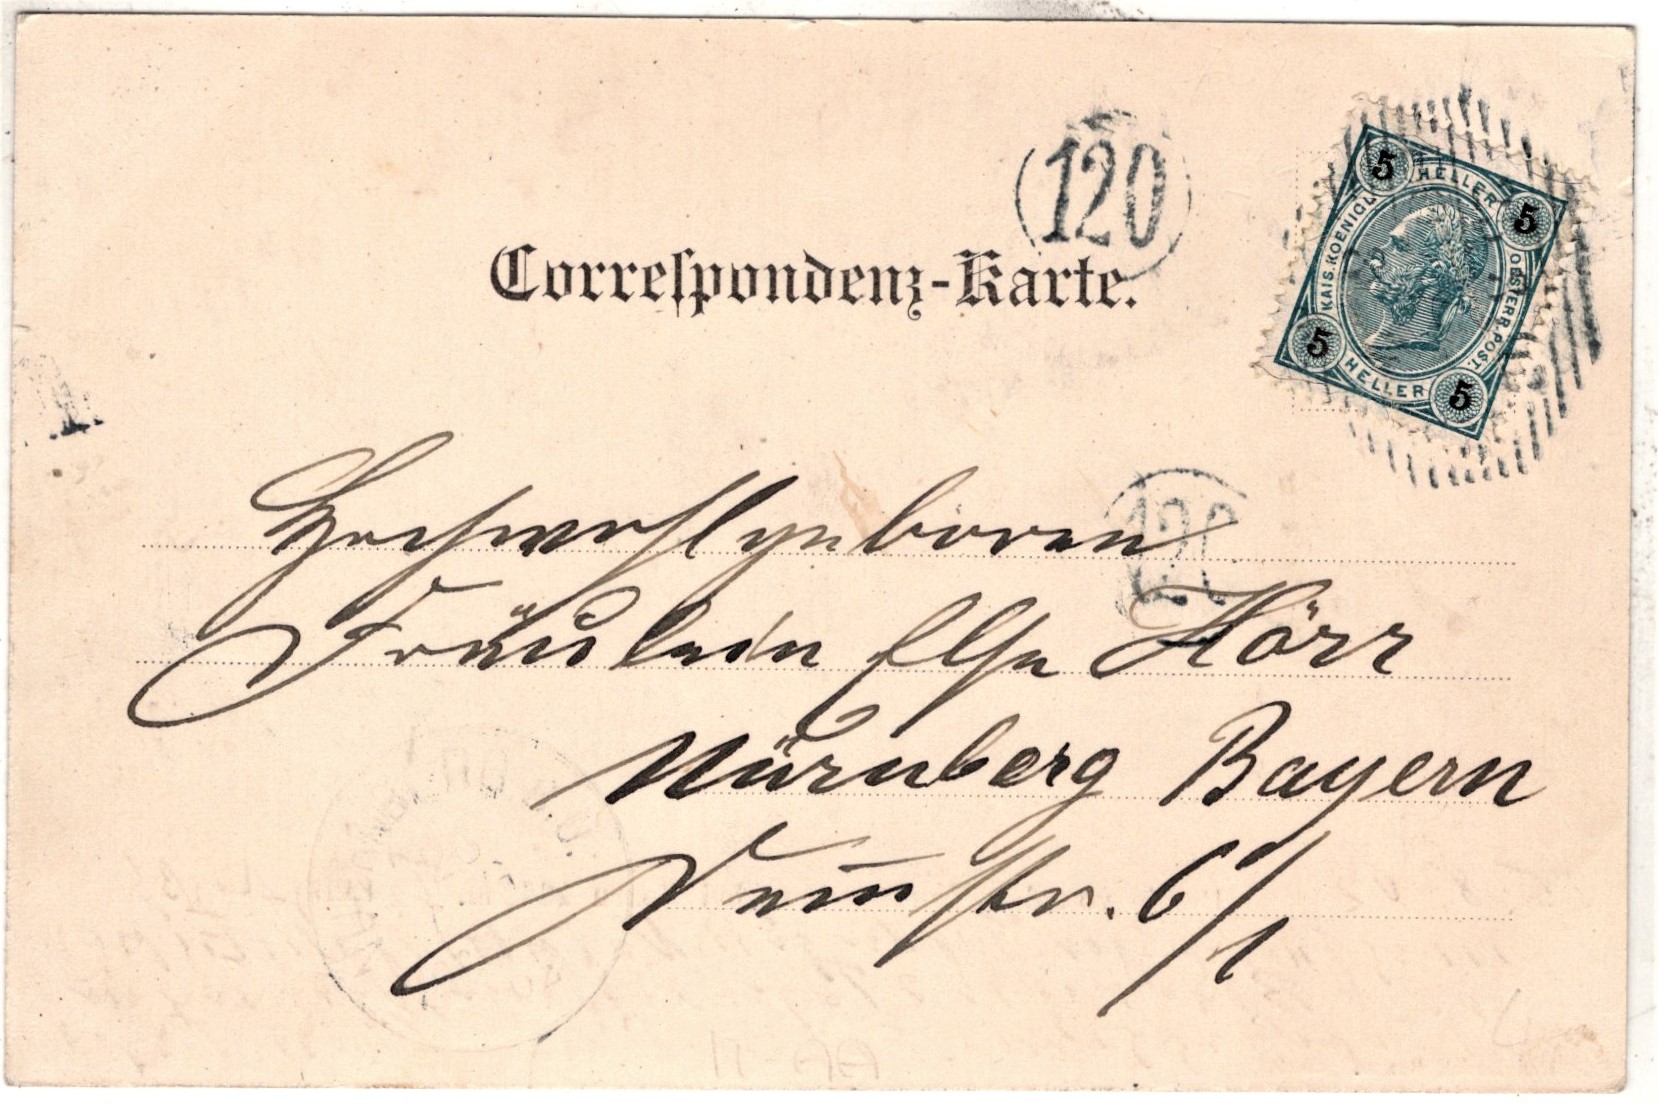 120
Correspondenz-Karte.
5 HELLER 5
KAIS. KOENIGL. OESTERR. POST.
5 HELLER 5
120
Hochwohlgeboren
Fräulein Else Hörr
Nürnberg Bayern
6/1